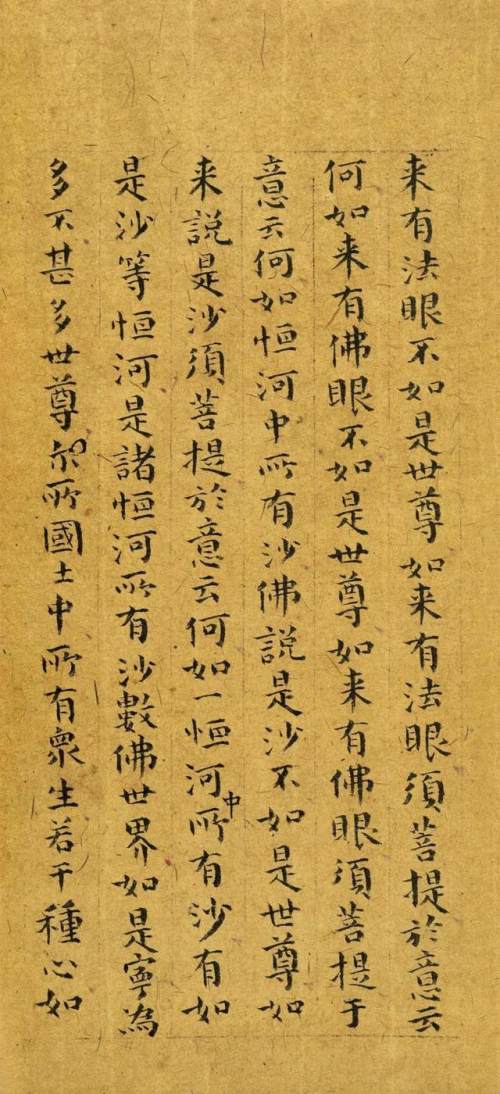 来有法眼不如是世尊如来有法眼須菩提於意云
何如来有佛眼不如是世尊如来有佛眼須菩提于
意云何如恒河中所有沙佛説是沙不如是世尊如
来説是沙須菩提於意云何如一恒河中所有沙有如
是沙等恒河是諸恒河所有沙數佛世界如是寧為
多不甚多世尊尒所國土中所有衆生若干種心如